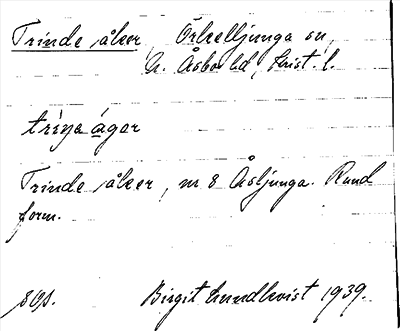 Trinde åker, Örkelljunga sn,
N. Åsbo hd, Krist. l.
trine ågar
Trinde åker, nr 8 Åsljunga. Rund
form.
Birgit Lundkvist 1939.